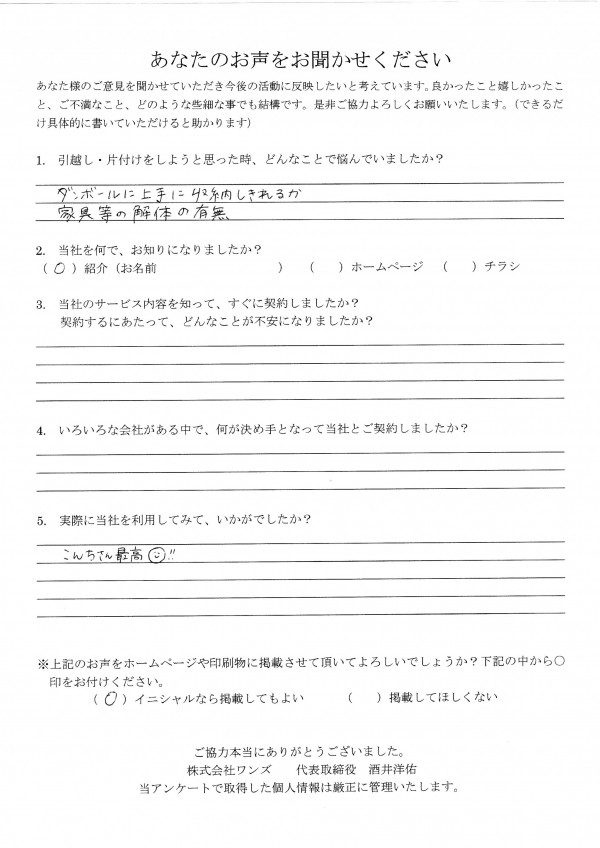 あなたのお声をお聞かせください
あなた様のご意見を聞かせていただき今後の活動に反映したいと考えています。良かったこと嬉しかったこ
と、ご不満なこと、どのような些細な事でも結構です。是非ご協力よろしくお願いいたします。（できるだ
け具体的に書いていただけると助かります）
1. 引越し・片付けをしようと思った時、どんなことで悩んでいましたか？
ダンボールに上手に収納しきれるか
家具等の解体の有無
2. 当社を何で、お知りになりましたか？
（ ○ ）紹介（お名前 ） （ ）ホームページ （ ）チラシ
3. 当社のサービス内容を知って、すぐに契約しましたか？
契約するにあたって、どんなことが不安になりましたか？
4. いろいろな会社がある中で、何が決め手となって当社とご契約しましたか？
5. 実際に当社を利用してみて、いかがでしたか？
こんちさん最高☺!!
※上記のお声をホームページや印刷物に掲載させて頂いてよろしいでしょうか？下記の中から○
印をお付けください。
（ ○ ）イニシャルなら掲載してもよい （ ）掲載してほしくない
ご協力本当にありがとうございました。
株式会社ワンズ 代表取締役 酒井洋佑
当アンケートで取得した個人情報は厳正に管理いたします。